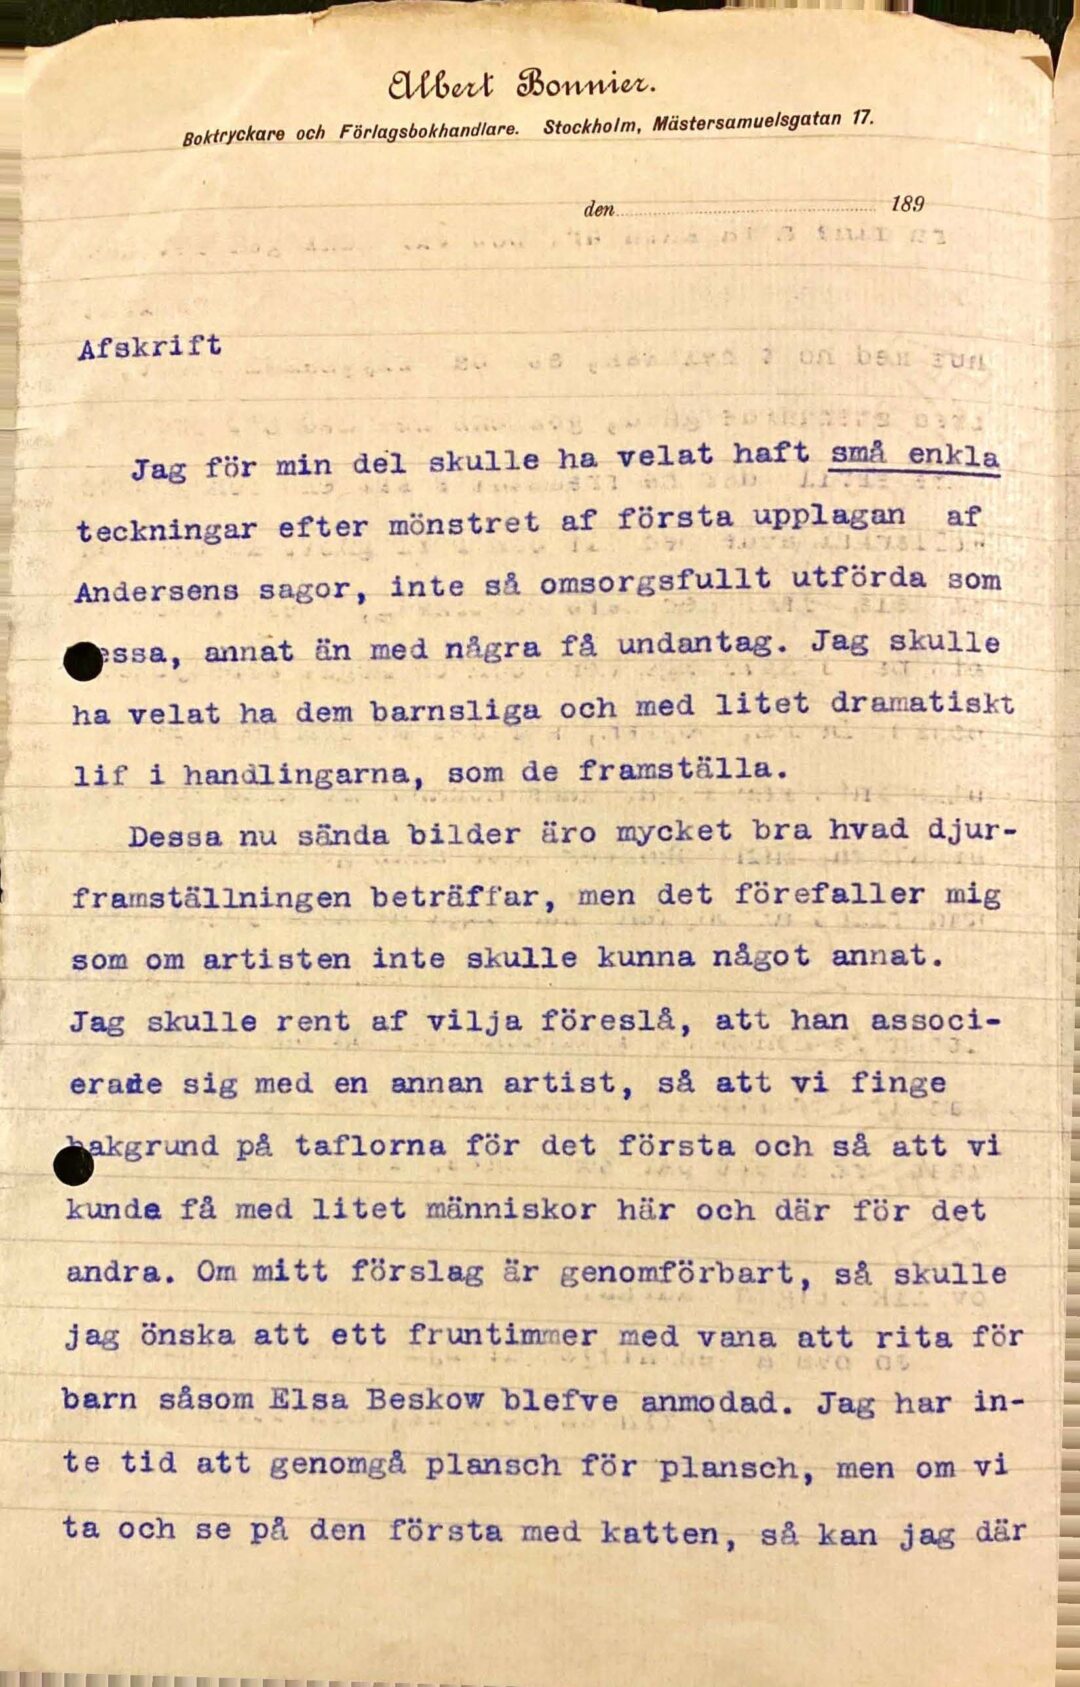 Albert Bonnier.
Boktryckare och Förlagsbokhandlare. Stockholm, Mästersamuelsgatan 17.
den 189
Afskrift
Jag för min del skulle ha velat haft små enkla
teckningar efter mönstret af första upplagan af
Andersens sagor, inte så omsorgsfullt utförda som
essa, annat än med några få undantag. Jag skulle
ha velat ha dem barnsliga och med litet dramatiskt
lif i handlingarna, som de framställa.
Dessa nu sända bilder äro mycket bra hvad djur-
framställningen beträffar, men det förefaller mig
som om artisten inte skulle kunna något annat.
Jag skulle rent af vilja föreslå, att han associ-
erade sig med en annan artist, så att vi finge
bakgrund på taflorna för det första och så att vi
kunde få med litet människor här och där för det
andra. Om mitt förslag är genomförbart, så skulle
jag önska att ett fruntimmer med vana att rita för
barn såsom Elsa Beskow blefve anmodad. Jag har in-
te tid att genomgå plansch för plansch, men om vi
ta och se på den första med katten, så kan jag där